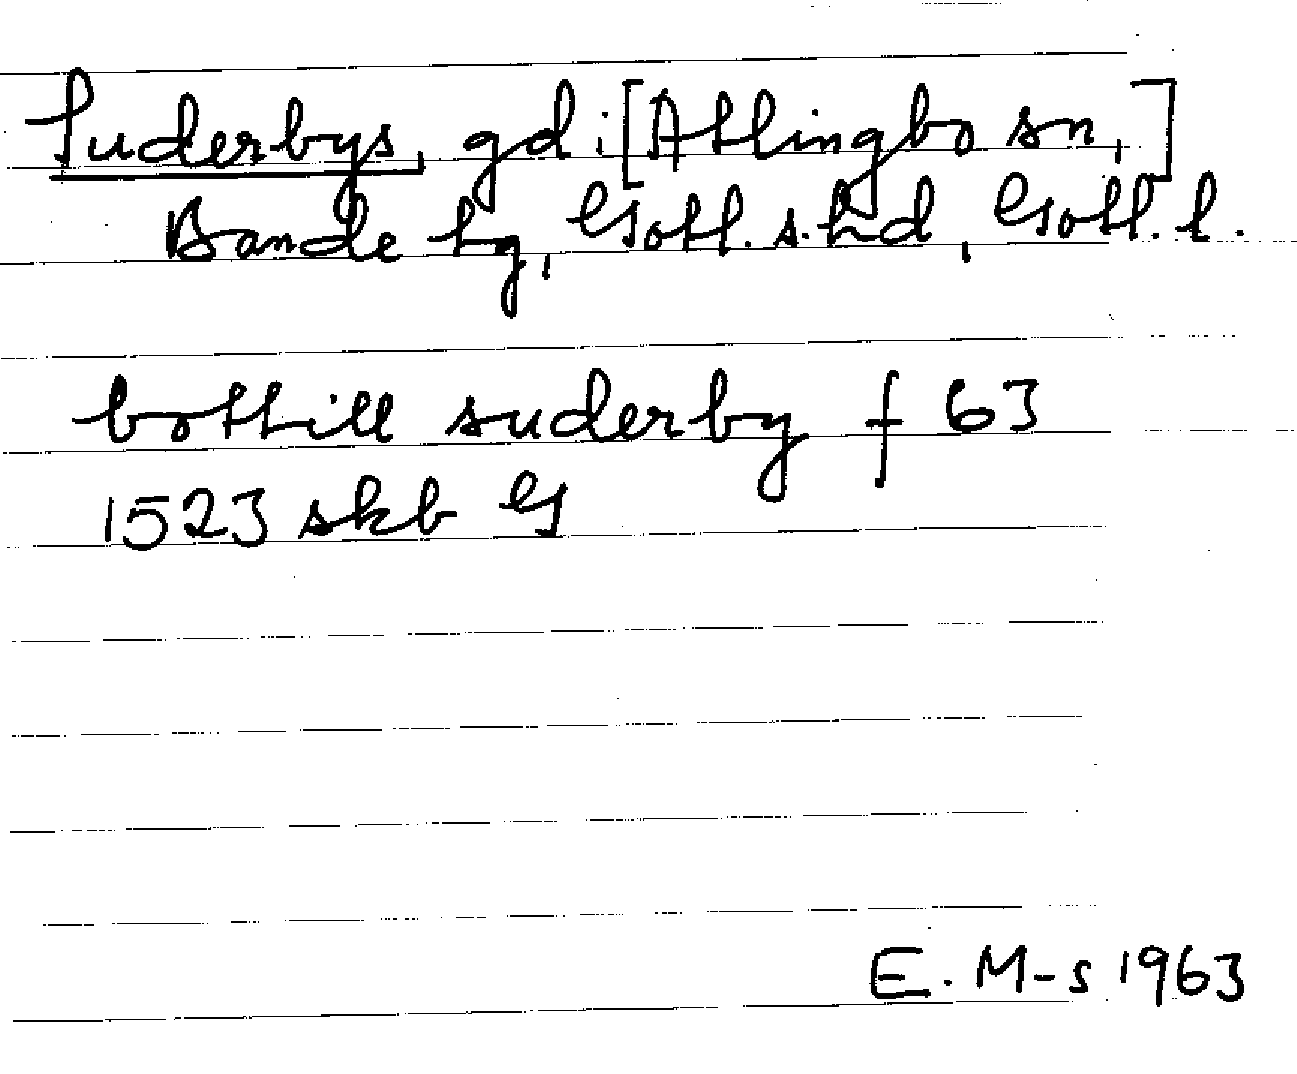 Suderbys, gd i [Atlingbo sn,]
Bande hg, Gotl. s. hd, Gotl. l.
bothill suderby f 63
1523 skb G
E. M-s 1963